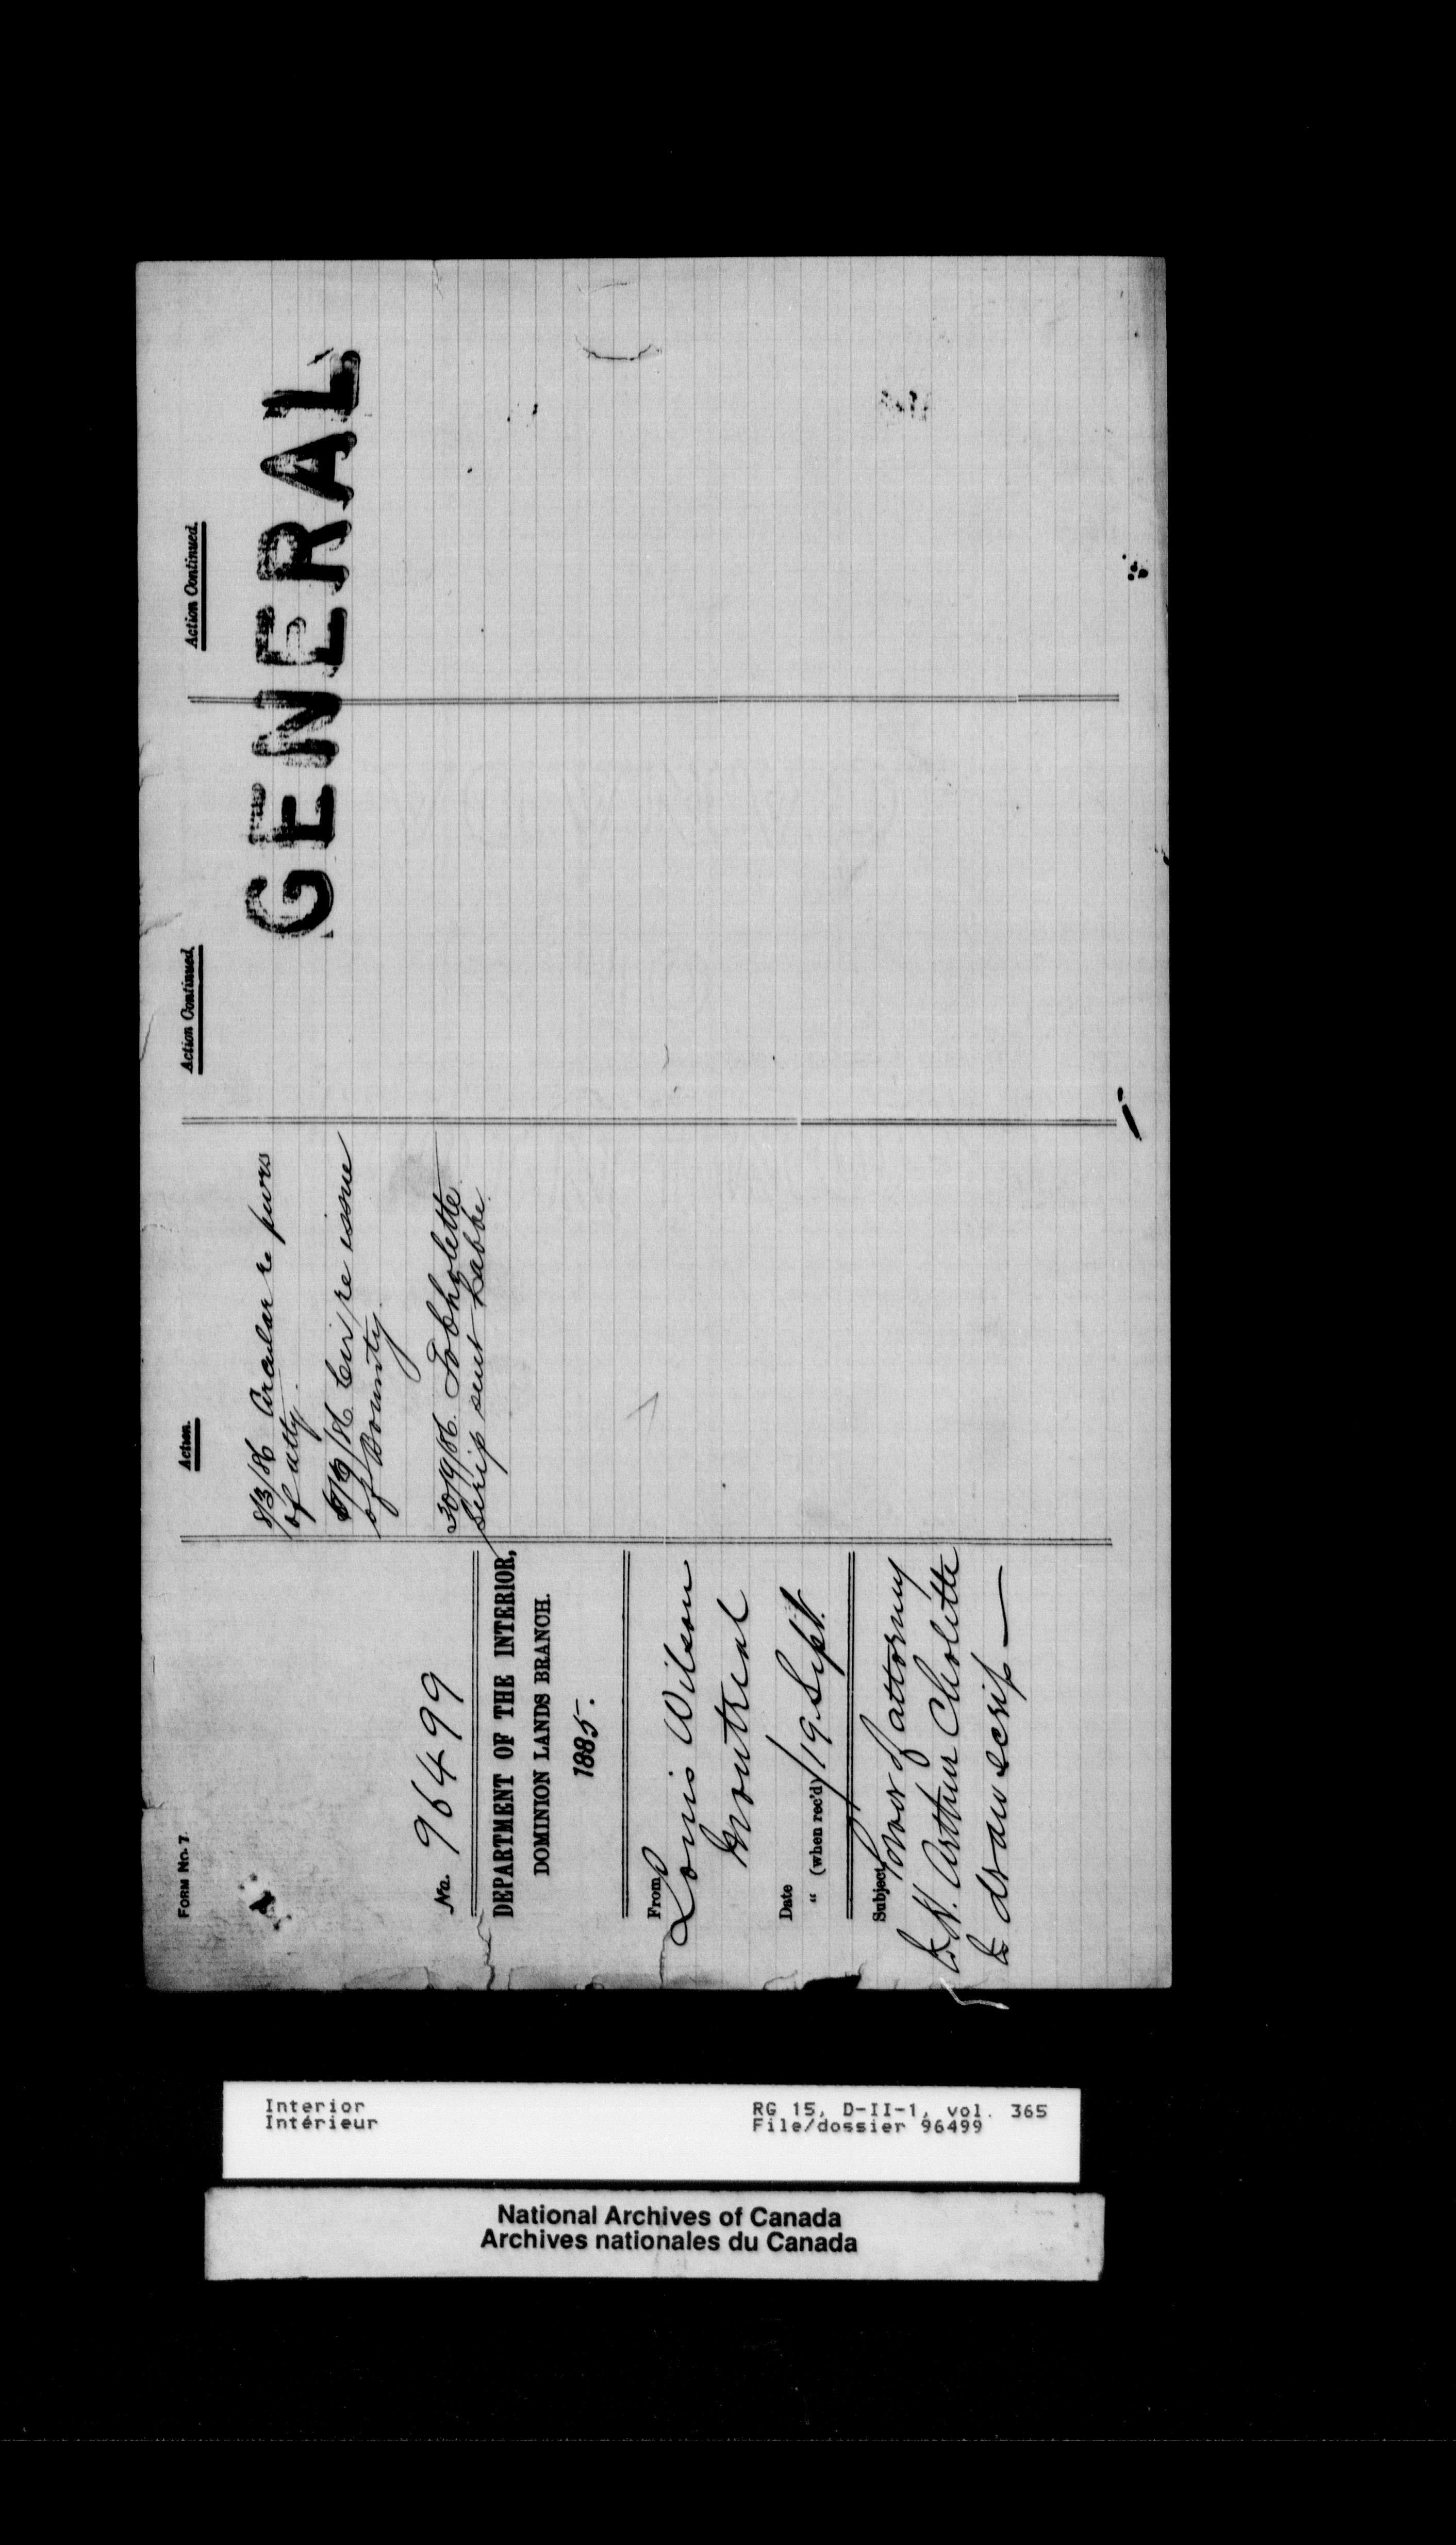 FORM No. 7.
No. 96499
DEPARTMENT OF THE INTERIOR,
DOMINION LANDS BRANCH.
1885.
From
Louis Wilson
Montreal
Date
" (when rec'd) 19 Sept.
Subject
Power of attorney
to N. Arthur Cholette
to draw scrip —
Action.
8/3/86 Circular re pwrs
of atty.
/86 Cir re issue
of Bounty.
30/9/86. To Cholette
Scrip sent
Action Continued.
Action Continued.
GENERAL
Interior
Intérieur
RG 15, D-II-1, vol. 365
File/dossier 96499
National Archives of Canada
Archives nationales du Canada